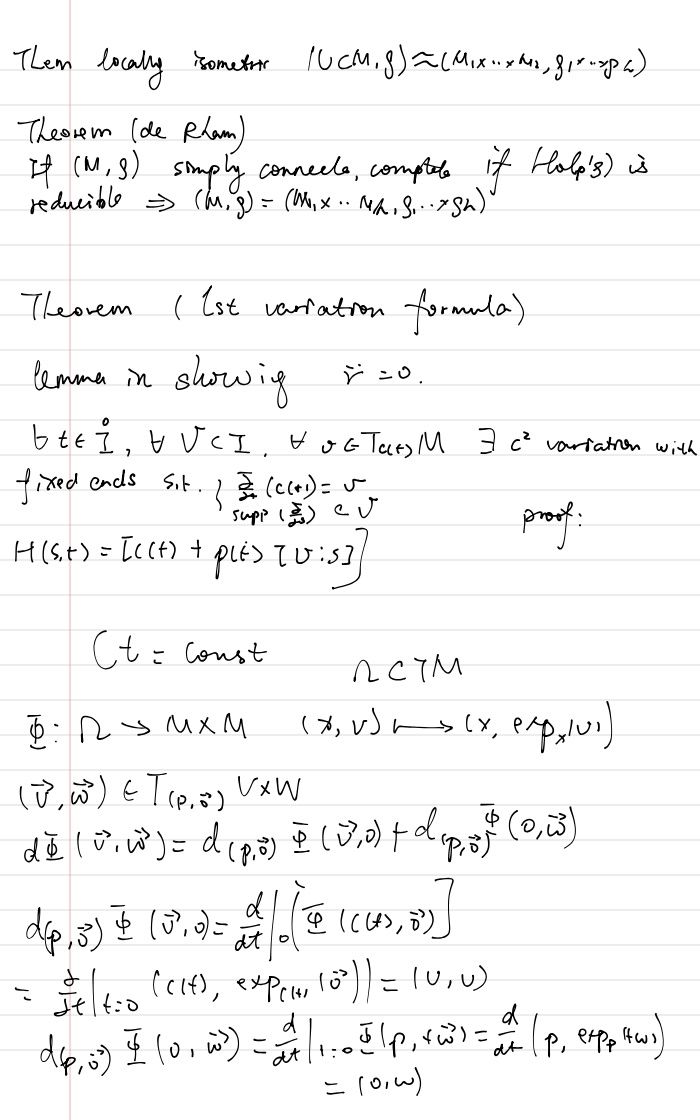 Then locally isometric (U⊂M, g) ≈ (M₁×··×M₂, g₁×··×g_k)
Theorem (de Rham)
If (M, g) simply connecte, complete if Hol_p(g) is
reducible ⇒ (M, g) = (M₁×·· M_k, g₁..×g_k)
Theorem (1st variation formula)
lemma in showig γ̈ = 0.
∀ t ∈ I̊, ∀ V ⊂ I, ∀ v ∈ T_{c(t)} M ∃ C² variation with
fixed ends s.t. { ∂/∂s (c(t)) = v
supp (∂/∂s) ⊂ V
proof:
H(s,t) = [c(t) + ρ(t) [v·s]]
Ct = const
Ω ⊂ TM
Φ: Ω → M×M (x, v) ⟼ (x, exp_x(v))
(v⃗, w⃗) ∈ T_{(p,o⃗)} V×W
dΦ (v⃗, w⃗) = d_{(p,o⃗)} Φ (v⃗,0) + d_{(p,o⃗)} Φ (0,w⃗)
d_{(p,o⃗)} Φ (v⃗,0) = d/dt|₀ [Φ (c(t), o⃗)]
= d/dt|_{t=0} (c(t), exp_{c(t)} (o⃗)) = (v, v)
d_{(p,o⃗)} Φ (0, w⃗) = d/dt|_{t=0} Φ(p, tw⃗) = d/dt (p, exp_p (tw))
= (0,w)